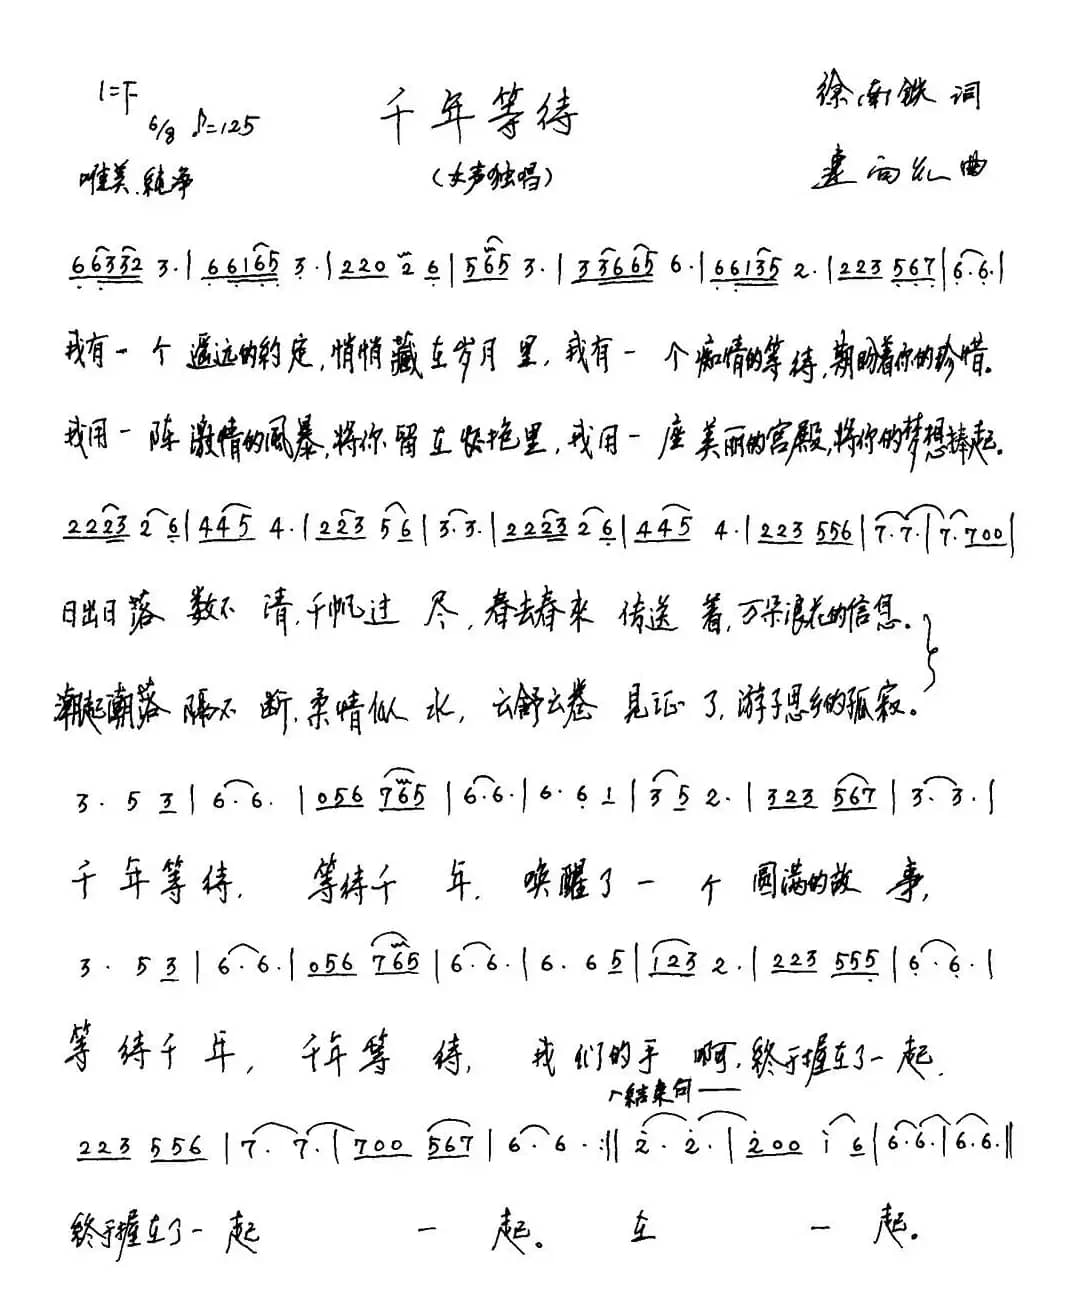 1=F
6/8 ♪=125
千年等待
徐南铁 词
唯美.纯净
(女声独唱)
连向红 曲
66332 3·|66165 3·|220 2 6|565 3·|33665 6·|66135 2·|223 567|6·6·|
我有一个遥远的约定,悄悄藏在岁月里,我有一个痴情的等待,期盼着你的珍惜。
我用一阵激情的风暴,将你留在怀抱里,我用一座美丽的宫殿,将你的梦想捧起。
2223 26|445 4·|223 56|3·3·|2223 26|445 4·|223 556|7·7·|7·700|
日出日落数不清,千帆过尽,春去春来传送着,万朵浪花的信息。
潮起潮落隔不断,柔情似水,云舒云卷见证了,游子思乡的孤寂。
3·53|6·6·|056 765|6·6·|6·61|35 2·|323 567|3·3·|
千年等待,等待千年,唤醒了一个圆满的故事,
3·53|6·6·|056 765|6·6·|6·65|123 2·|223 555|6·6·|
等待千年,千年等待,我们的手啊,终于握在了一起,
结束句
223 556|7·7·|700 567|6·6·:||2·2·|200 i6|6·6·|6·6·||
终于握在了一起 一起。在一起。